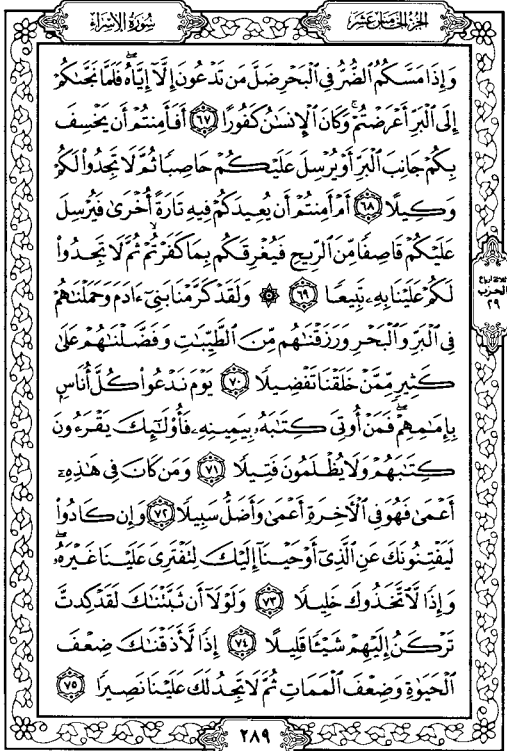 سُورَةُ الإِسْرَاءِ
الجُزْءُ الخَامِسَ عَشَرَ
وَإِذَا مَسَّكُمُ ٱلضُّرُّ فِي ٱلْبَحْرِ ضَلَّ مَن تَدْعُونَ إِلَّآ إِيَّاهُۖ فَلَمَّا نَجَّىٰكُمْ
إِلَى ٱلْبَرِّ أَعْرَضْتُمْۚ وَكَانَ ٱلْإِنسَٰنُ كَفُورًا ٦٧ أَفَأَمِنتُمْ أَن يَخْسِفَ
بِكُمْ جَانِبَ ٱلْبَرِّ أَوْ يُرْسِلَ عَلَيْكُمْ حَاصِبًا ثُمَّ لَا تَجِدُوا۟ لَكُمْ
وَكِيلًا ٦٨ أَمْ أَمِنتُمْ أَن يُعِيدَكُمْ فِيهِ تَارَةً أُخْرَىٰ فَيُرْسِلَ
عَلَيْكُمْ قَاصِفًا مِّنَ ٱلرِّيحِ فَيُغْرِقَكُم بِمَا كَفَرْتُمْۙ ثُمَّ لَا تَجِدُوا۟
لَكُمْ عَلَيْنَا بِهِۦ تَبِيعًا ٦٩ ۞ وَلَقَدْ كَرَّمْنَا بَنِيٓ ءَادَمَ وَحَمَلْنَٰهُمْ
فِي ٱلْبَرِّ وَٱلْبَحْرِ وَرَزَقْنَٰهُم مِّنَ ٱلطَّيِّبَٰتِ وَفَضَّلْنَٰهُمْ عَلَىٰ
كَثِيرٍ مِّمَّنْ خَلَقْنَا تَفْضِيلًا ٧٠ يَوْمَ نَدْعُوا۟ كُلَّ أُنَاسٍۭ
بِإِمَٰمِهِمْۖ فَمَنْ أُوتِيَ كِتَٰبَهُۥ بِيَمِينِهِۦ فَأُو۟لَٰٓئِكَ يَقْرَءُونَ
كِتَٰبَهُمْ وَلَا يُظْلَمُونَ فَتِيلًا ٧١ وَمَن كَانَ فِي هَٰذِهِۦٓ
أَعْمَىٰ فَهُوَ فِي ٱلْأٓخِرَةِ أَعْمَىٰ وَأَضَلُّ سَبِيلًا ٧٢ وَإِن كَادُوا۟
لَيَفْتِنُونَكَ عَنِ ٱلَّذِيٓ أَوْحَيْنَآ إِلَيْكَ لِتَفْتَرِيَ عَلَيْنَا غَيْرَهُۥۖ
وَإِذًا لَّٱتَّخَذُوكَ خَلِيلًا ٧٣ وَلَوْلَآ أَن ثَبَّتْنَٰكَ لَقَدْ كِدتَّ
تَرْكَنُ إِلَيْهِمْ شَيْـًٔا قَلِيلًا ٧٤ إِذًا لَّأَذَقْنَٰكَ ضِعْفَ
ٱلْحَيَوٰةِ وَضِعْفَ ٱلْمَمَاتِ ثُمَّ لَا تَجِدُ لَكَ عَلَيْنَا نَصِيرًا ٧٥
ثلاثة أرباع
الحزب
٢٩
٢٨٩